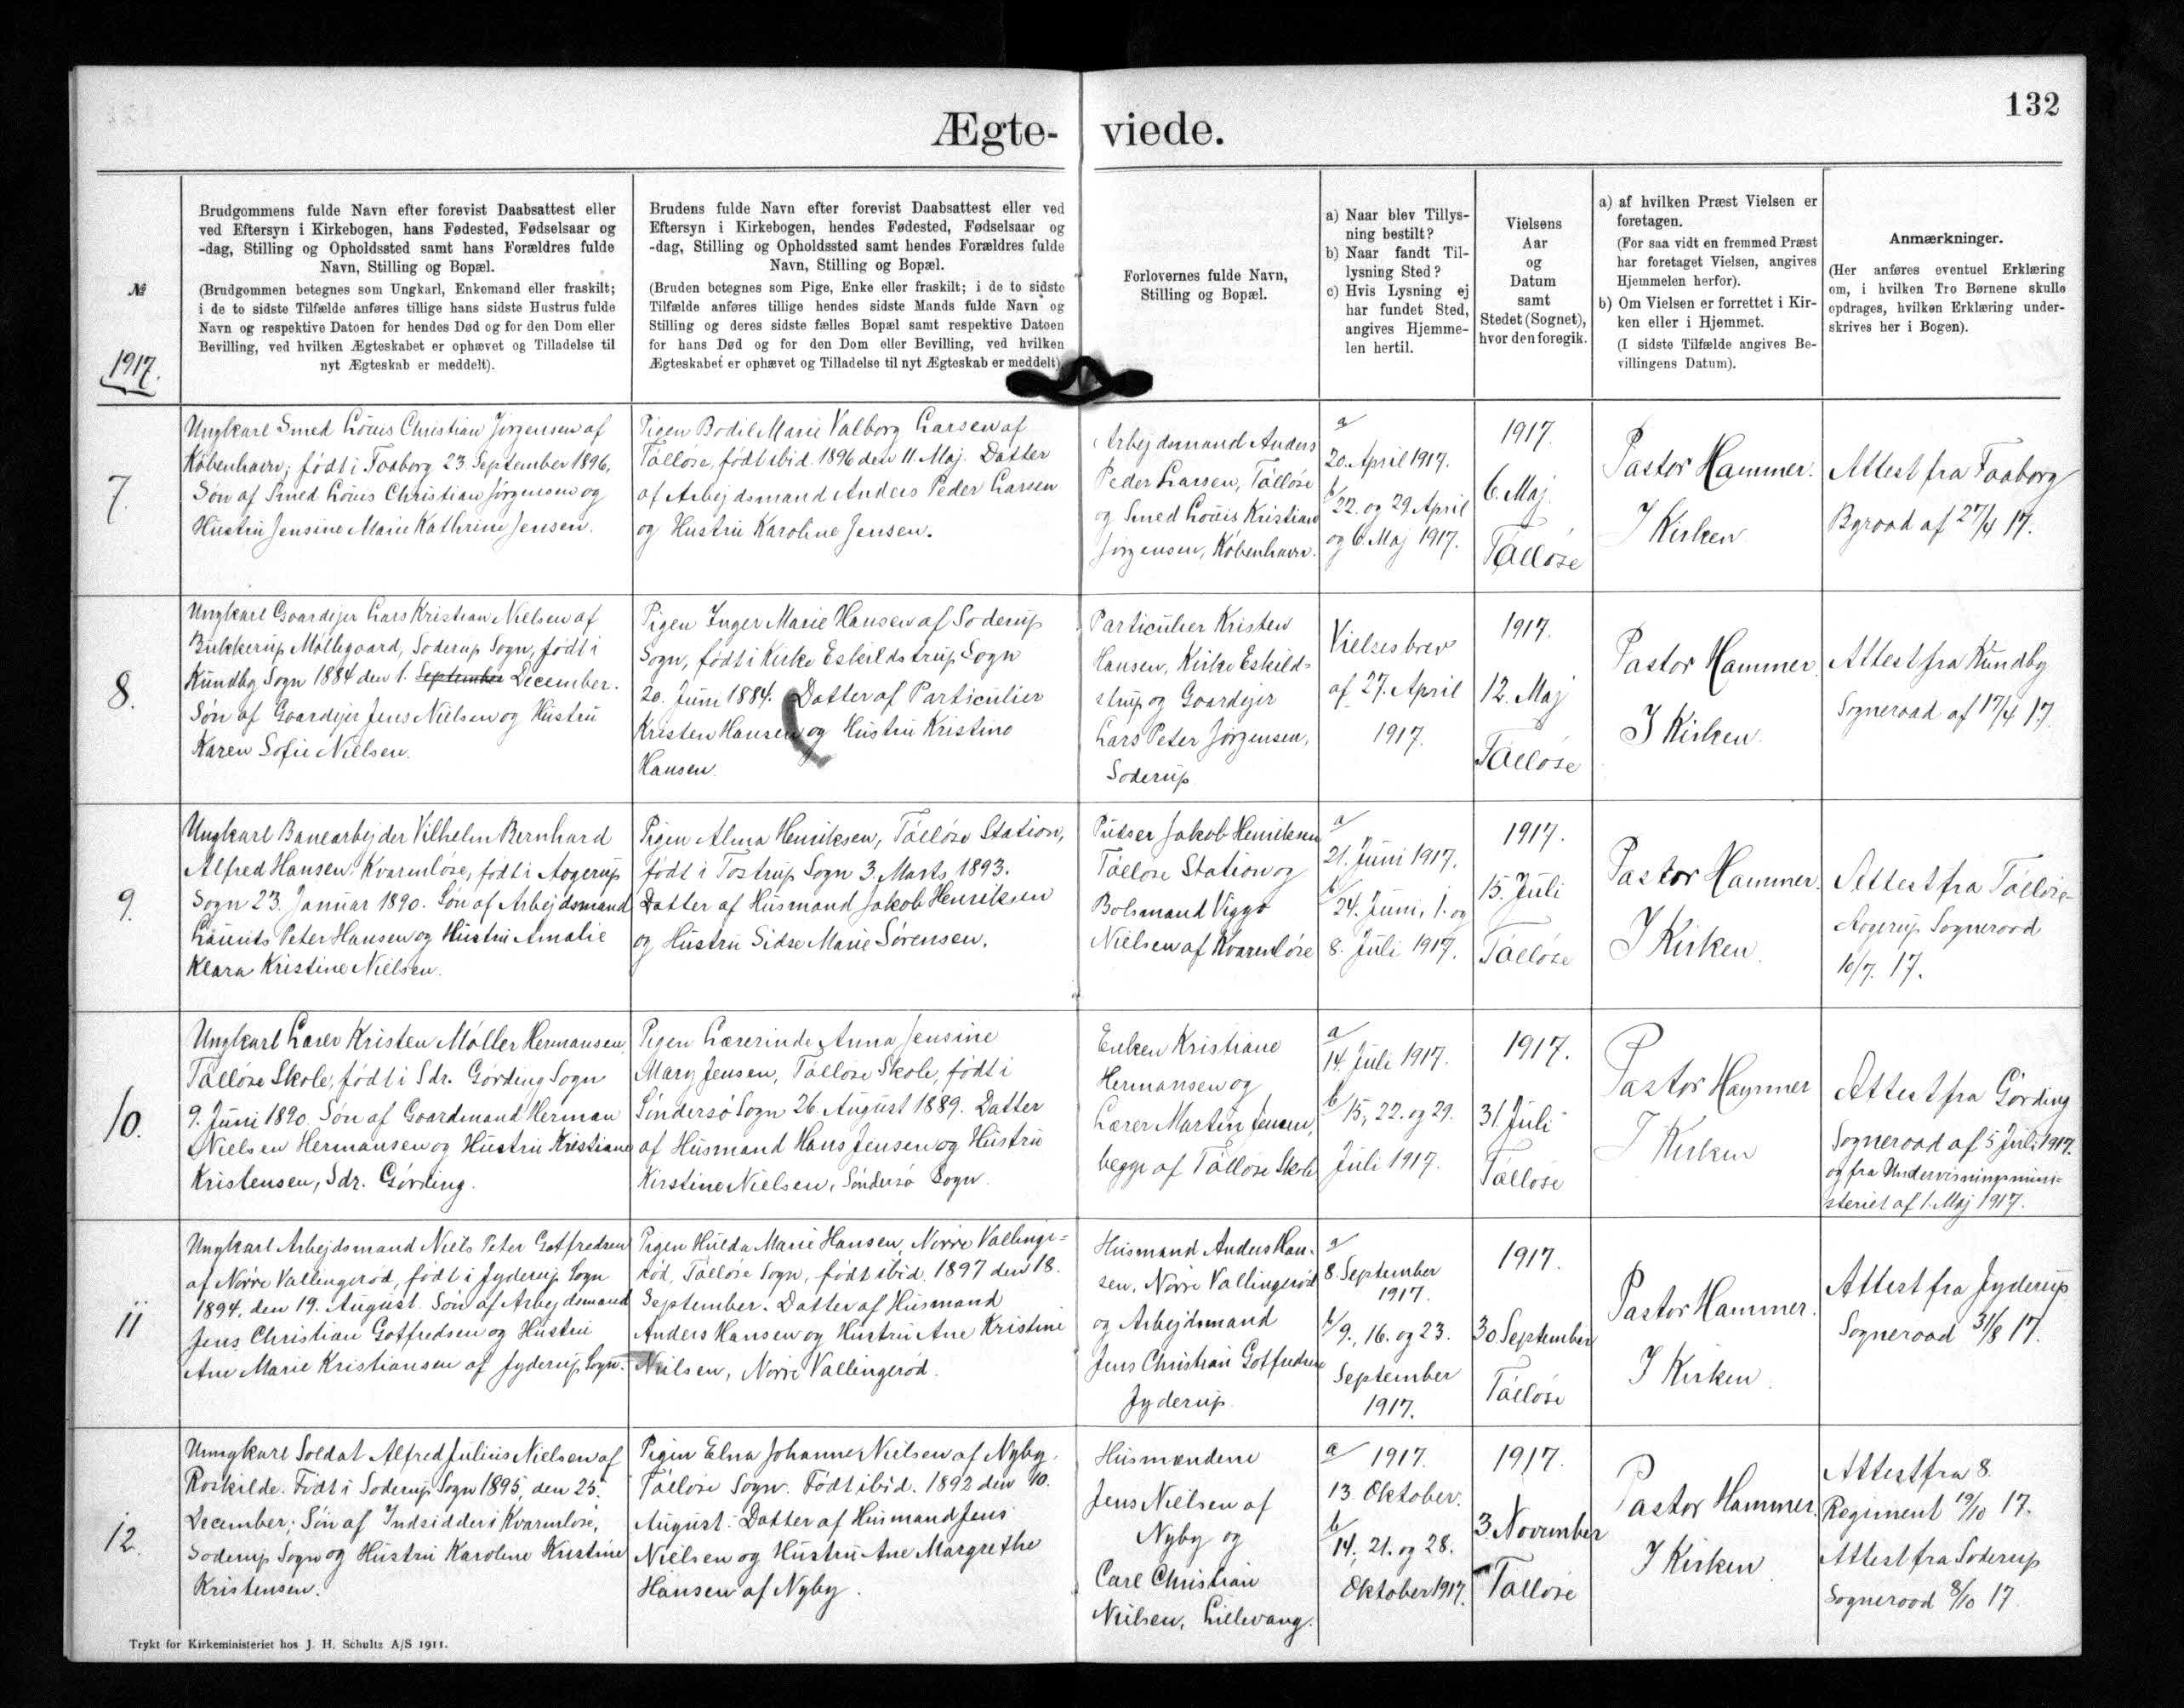 132
Ægte- viede.
№
1917.
Brudgommens fulde Navn efter forevist Daabsattest eller
ved Eftersyn i Kirkebogen, hans Fødested, Fødselsaar og
-dag, Stilling og Opholdssted samt hans Forældres fulde
Navn, Stilling og Bopæl.
(Brudgommen betegnes som Ungkarl, Enkemand eller fraskilt;
i de to sidste Tilfælde anføres tillige hans sidste Hustrus fulde
Navn og respektive Datoen for hendes Død og for den Dom eller
Bevilling, ved hvilken Ægteskabet er ophævet og Tilladelse til
nyt Ægteskab er meddelt).
Brudens fulde Navn efter forevist Daabsattest eller ved
Eftersyn i Kirkebogen, hendes Fødested, Fødselsaar og
-dag, Stilling og Opholdssted samt hendes Forældres fulde
Navn, Stilling og Bopæl.
(Bruden betegnes som Pige, Enke eller fraskilt; i de to sidste
Tilfælde anføres tillige hendes sidste Mands fulde Navn og
Stilling og deres sidste fælles Bopæl samt respektive Datoen
for hans Død og for den Dom eller Bevilling, ved hvilken
Ægteskabet er ophævet og Tilladelse til nyt Ægteskab er meddelt).
Forlovernes fulde Navn,
Stilling og Bopæl.
a) Naar blev Tillys-
ning bestilt?
b) Naar fandt Til-
lysning Sted?
c) Hvis Lysning ej
har fundet Sted,
angives Hjemme-
len hertil.
Vielsens
Aar
og
Datum
samt
Stedet (Sognet),
hvor den foregik.
a) af hvilken Præst Vielsen er
foretagen.
(For saa vidt en fremmed Præst
har foretaget Vielsen, angives
Hjemmelen herfor).
b) Om Vielsen er forrettet i Kir-
ken eller i Hjemmet.
(I sidste Tilfælde angives Be-
villingens Datum).
Anmærkninger.
(Her anføres eventuel Erklæring
om, i hvilken Tro Børnene skulle
opdrages, hvilken Erklæring under-
skrives her i Bogen).
7.
Ungkarl Smed Louis Christian Jørgensen af
København; født i Faaborg 23. September 1896,
Søn af Smed Louis Christian Jørgensen og
Hustru Jensine Marie Kathrine Jensen.
Pigen Bodil Marie Valborg Larsen af
Tølløse, født ibid. 1896 den 11 Maj. Datter
af Arbejdsmand Anders Peder Larsen
og Hustru Karoline Jensen.
Arbejdsmand Anders
Peder Larsen, Tølløse
og Smed Louis Kristian
Jørgensen, København.
a
20. April 1917.
b
22. og 29. April
og 6. Maj 1917.
1917.
6. Maj
Tølløse
Pastor Hammer.
I Kirken
Attest fra Faaborg
Byraad af 27/4 17.
8.
Ungkarl Gaardejer Lars Kristian Nielsen af
Bukkerup Møllegaard, Soderup Sogn, født i
Kundby Sogn 1884 den 1. September December.
Søn af Gaardejer Jens Nielsen og Hustru
Karen Sofie Nielsen.
Pigen Inger Marie Hansen af Soderup
Sogn, født i Kirke Eskildstrup Sogn
20. Juni 1884. Datter af Particulier
Kristen Hansen og Hustru Kristine
Hansen.
Particulier Kristen
Hansen, Kirke Eskild=
strup og Gaardejer
Lars Peter Jørgensen,
Soderup
Vielsesbrev
af 27. April
1917.
1917.
12. Maj
Tølløse
Pastor Hammer.
I Kirken.
Attest fra Kundby
Sogneraad af 17/4 17.
9.
Ungkarl Banearbejder Vilhelm Bernhard
Alfred Hansen, Kvarmløse, født i Aagerup
Sogn 23. Januar 1890. Søn af Arbejdsmand
Laurits Peter Hansen og Hustru Amalie
Klara Kristine Nielsen.
Pigen Alma Henriksen, Tølløse Station,
født i Tostrup Sogn 3. Marts 1893.
Datter af Husmand Jakob Henriksen
og Hustru Sidse Marie Sørensen.
Pudser Jakob Henriksen
Tølløse Station og
Bolsmand Viggo
Nielsen af Kvarmløse
a
21. Juni 1917.
b
24. Juni, 1. og
8. Juli 1917.
1917.
15. Juli
Tølløse
Pastor Hammer.
I Kirken.
Attest fra Tølløse-
Aagerup Sogneraad
10/7. 17.
10.
Ungkarl Lærer Kristen Møller Hermansen,
Tølløse Skole, født i Sdr. Gørding Sogn
9. Juni 1890. Søn af Gaardmand Herman
Nielsen Hermansen og Hustru Kristiane
Kristensen, Sdr. Gørding.
Pigen Lærerinde Anna Jensine
Mary Jensen, Tølløse Skole, født i
Søndersø Sogn 26. August 1889. Datter
af Husmand Hans Jensen og Hustru
Kirstine Nielsen, Søndersø Sogn.
Enken Kristiane
Hermansen og
Lærer Martin Jensen,
begge af Tølløse Skole
a
14. Juli 1917.
b
15., 22. og 29.
Juli 1917.
1917.
31. Juli
Tølløse
Pastor Hammer
I Kirken
Attest fra Gørding
Sogneraad af 5 Juli 1917.
og fra Undervisningsmini=
steriet af 1. Maj 1917.
11
Ungkarl Arbejdsmand Niels Peter Gotfredsen
af Nørre Vallingerød, født i Jyderup Sogn
1894, den 19. August. Søn af Arbejdsmand
Jens Christian Gotfredsen og Hustru
Ane Marie Kristiansen af Jyderup Sogn.
Pigen Hulda Marie Hansen, Nørre Vallinge=
rød, Tølløse Sogn, født ibid. 1897 den 18.
September. Datter af Husmand
Anders Hansen og Hustru Ane Kristine
Nielsen, Nørre Vallingerød.
Husmand Anders Han-
sen, Nørre Vallingerød
og Arbejdsmand
Jens Christian Gotfredsen
Jyderup.
a
8. September
1917.
b
9., 16. og 23.
September
1917.
1917.
30 September
Tølløse
Pastor Hammer.
I Kirken.
Attest fra Jyderup
Sogneraad 31/8 17.
12.
Unngkarl Soldat Alfred Julius Nielsen af
Roskilde. Født i Soderup Sogn 1895, den 25.
December; Søn af Indsidder i Kvarmløse,
Soderup Sogn og Hustru Karoline Kristine
Kristensen.
Pigen Elna Johanne Nielsen af Nyby,
Tølløse Sogn. Født ibid. 1892 den 10.
August. Datter af Husmand Jens
Nielsen og Hustru Ane Margrethe
Hansen af Nyby.
Husmændene
Jens Nielsen af
Nyby og
Carl Christian
Nielsen, Lillevang.
a 1917.
13. Oktober.
b
14., 21. og 28.
Oktober 1917.
1917.
3. November
Tølløse
Pastor Hammer.
I Kirken.
Attest fra 8.
Regiment 19/10 17.
Attest fra Soderup
Sogneraad 8/10 17.
Trykt for Kirkeministeriet hos J. H. Schultz A/S 1911.